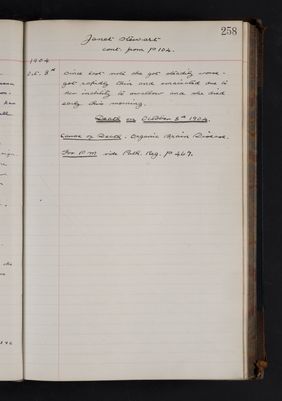 258
Janet Stewart
cont. from P 104.
1904
Oct. 8th Since last note she got steadily worse -
got rapidly thin and emaciated due to
her inability to swallow and she died
early this morning.
Death on October 8th 1904.
Cause of Death - Organic Brain Disease.
For P.M. vide Path. Reg. P 467.